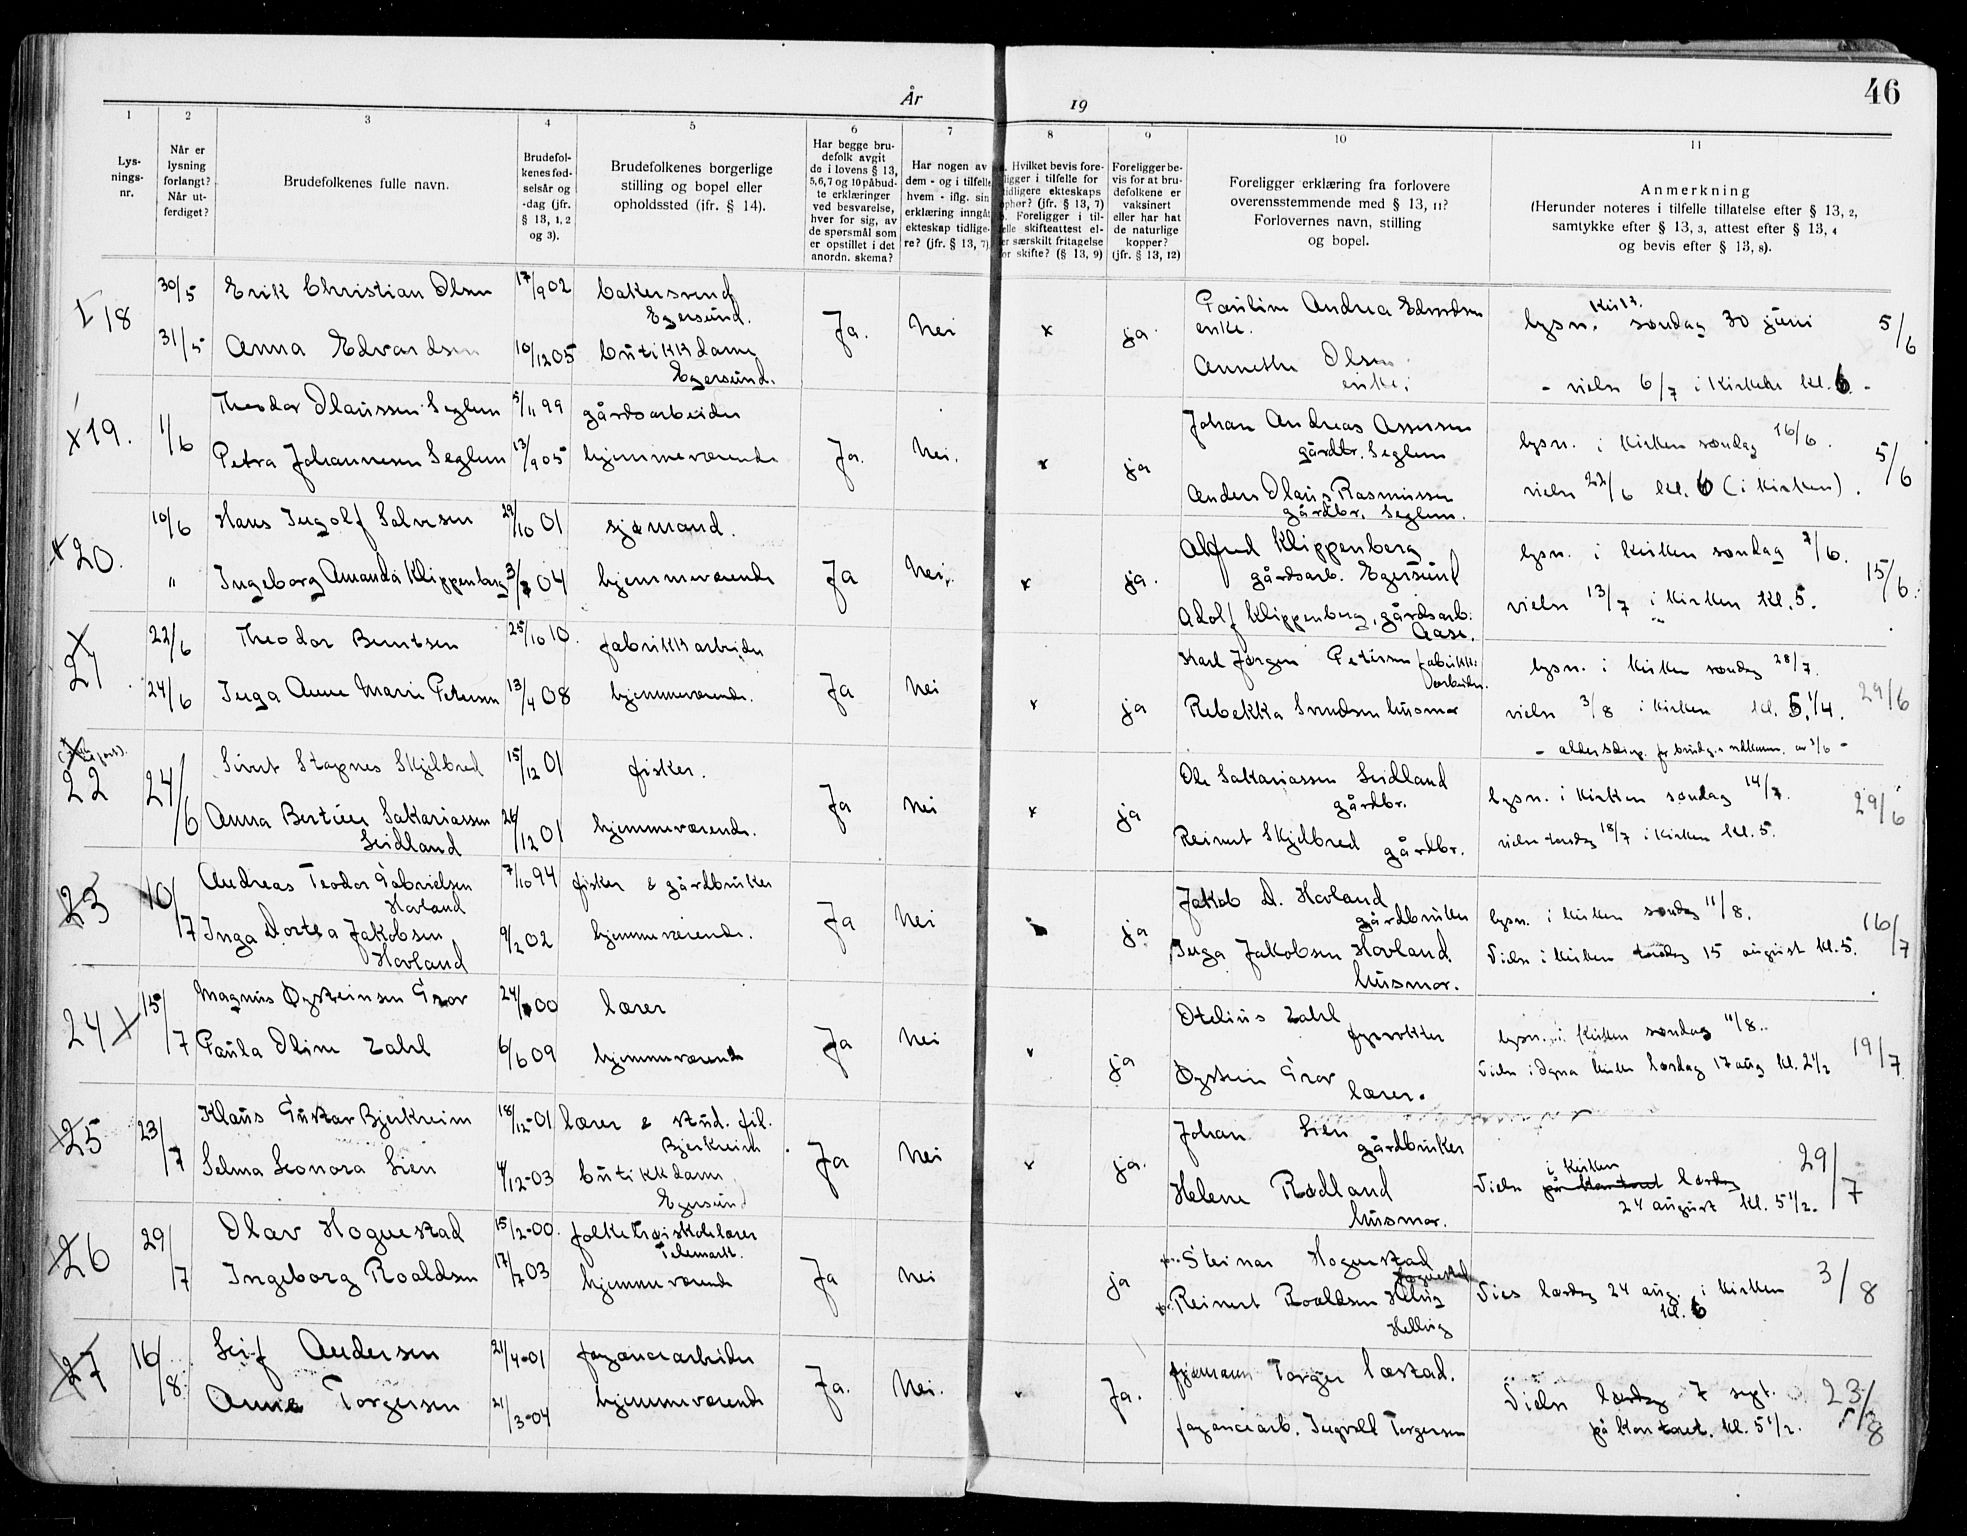 46
År 19
1 2 3 4 5 6 7 8 9 10 11
Lys-
nings-
nr.
Når er
lysning
forlangt?
Når ut-
ferdiget?
Brudefolkenes fulle navn.
Brudefol-
kenes fød-
selsår og
-dag (jfr.
§ 13, 1, 2
og 3).
Brudefolkenes borgerlige
stilling og bopel eller
opholdssted (jfr. § 14).
Har begge bru-
defolk avgit
de i lovens § 13,
5,6,7 og 10 påbud-
te erklæringer
ved besvarelse,
hver for sig, av
de spørsmål som
er opstillet i det
anordn. skema?
Har nogen av
dem - og i tilfelle
hvem - iflg. sin
erklæring inngåt
ekteskap tidlige-
re? (jfr. § 13, 7)
Hvilket bevis fore-
ligger i tilfelle for
tidligere ekteskaps
ophør? (jfr. § 13, 7)
Foreligger i til-
felle skifteattest el-
ler særskilt fritagelse
for skifte? (§ 13, 9)
Foreligger be-
vis for at bru-
defolkene er
vaksinert
eller har hat
de naturlige
kopper?
(jfr. § 13, 12)
Foreligger erklæring fra forlovere
overensstemmende med § 13, 11?
Forlovernes navn, stilling
og bopel.
Anmerkning
(Herunder noteres i tilfelle tillatelse efter § 13, 2,
samtykke efter § 13, 3, attest efter § 13, 4
og bevis efter § 13, 8).
18
30/5 Erik Christian Olsen 17/9 02 bakersvend
Egersund.
31/5 Anna Edvardsen 10/12 05 butikkdame
Egersund.
Ja. Nei x ja
Pauline Andrea Edvardsen
enke.
Annethe Olsen
enke.
lysn. søndag 30 juni
- vielse 6/7 i kirken kl. 6. -
5/6
x 19.
1/6 Theodor Olaussen Seglem 5/11 99 gårdsarbeider
Petra Johannesen Seglem 13/9 05 hjemmeværende
Ja. Nei. x ja
Johan Andreas Assersen
gårdbr. Seglem
Anders Olaus Rasmussen
gårdbr. Seglem.
lysn. i kirken søndag 16/6.
vielse 22/6 kl. 6 (i kirken).
5/6
x 20.
10/6 Hans Ingolf Salvesen 29/10 01 sjømand.
" Ingeborg Amanda Klippenberg 04 hjemmeværende
Ja Nei. x ja.
Alfred Klippenberg
gårdsarb. Egersund
Adolf Klippenberg, gårdsarb.
Aase.
lysn. i kirken søndag 7/6.
vielse 13/7 i kirken kl. 5.
15/6.
21
22/6 Theodor Berntsen 25/10 10. fabrikkarbeider
24/6 Inga Anne Marie Petersen 13/4 08 hjemmeværende.
Ja Nei x ja
Karl Jørgen Petersen fabrikk-
arbeider.
Rebekka Svendsen husmor
lysn. i kirken søndag 28/7.
vielse 3/8 i kirken kl. 5.1/4.
29/6
22
24/6 Sivert Stapnes Skjelbred 15/12 01 fisker.
Anna Bertine Sakariassen 26/12 01 hjemmeværende.
Leidland
Ja Nei x ja
Ole Sakariassen Leidland
gårdbr.
Reinert Skjelbred gårdbr.
lysn. i kirken søndag 14/7.
vielse torsdag 18/7 i kirken kl. 5.
29/6
23
10/7 Andreas Teodor Gabrielsen 7/10 94 fisker & gårdbruker
Hovland
Inga Dortea Jakobsen 9/2 02 hjemmeværende.
Hovland
Ja Nei ja
Jakob D. Hovland
gårdbruker
Inga Jakobsen Hovland
husmor.
lysn. i kirken søndag 11/8.
Vielse i kirken torsdag 15 august kl. 5.
16/7
24 x
15/7 Magnus Øysteinsen Grov 24/ 00 lærer
Paula Oline Zahl 6/6 09 hjemmeværende
Ja Nei ja
Otelius Zahl
fyrvokter
Øystein Grov
lærer.
lysn. i kirken søndag 11/8.
Vielse i Ogna kirke lørdag 17 aug kl. 2 1/2
19/7
25
23/7 Klaus Gustav Bjerkreim 18/12-01 lærer & stud. fil.
Bjerkreim
Selma Leonora Lien 4/12-03 butikkdame
Egersund
Ja Nei x ja.
Johan Lien
gårdbruker
Helene Rødland
husmor.
i kirken
Vielse på kontoret lørdag
24 august kl. 5 1/2.
29/7
26
29/7 Olav Hognestad 15/2-00. folkehøiskolelærer
Telemark.
Ingeborg Roaldsen 17/7 03 hjemmeværende
Ja Nei ja
Steinar Hognestad
Hognestad
Reinert Roaldsen
Helling
Vies lørdag 24 aug. i kirken
kl. 6
3/8
27
16/8 Leif Andersen 21/4-01 fayancearbeider
Anna Torgersen 21/3-04 hjemmeværende
Ja. Nei. Ja.
Torger
fayancearb. Ingvald Torgersen
Vielse lørdag 7 sept.
på kontoret. kl. 5 1/2.
23/8